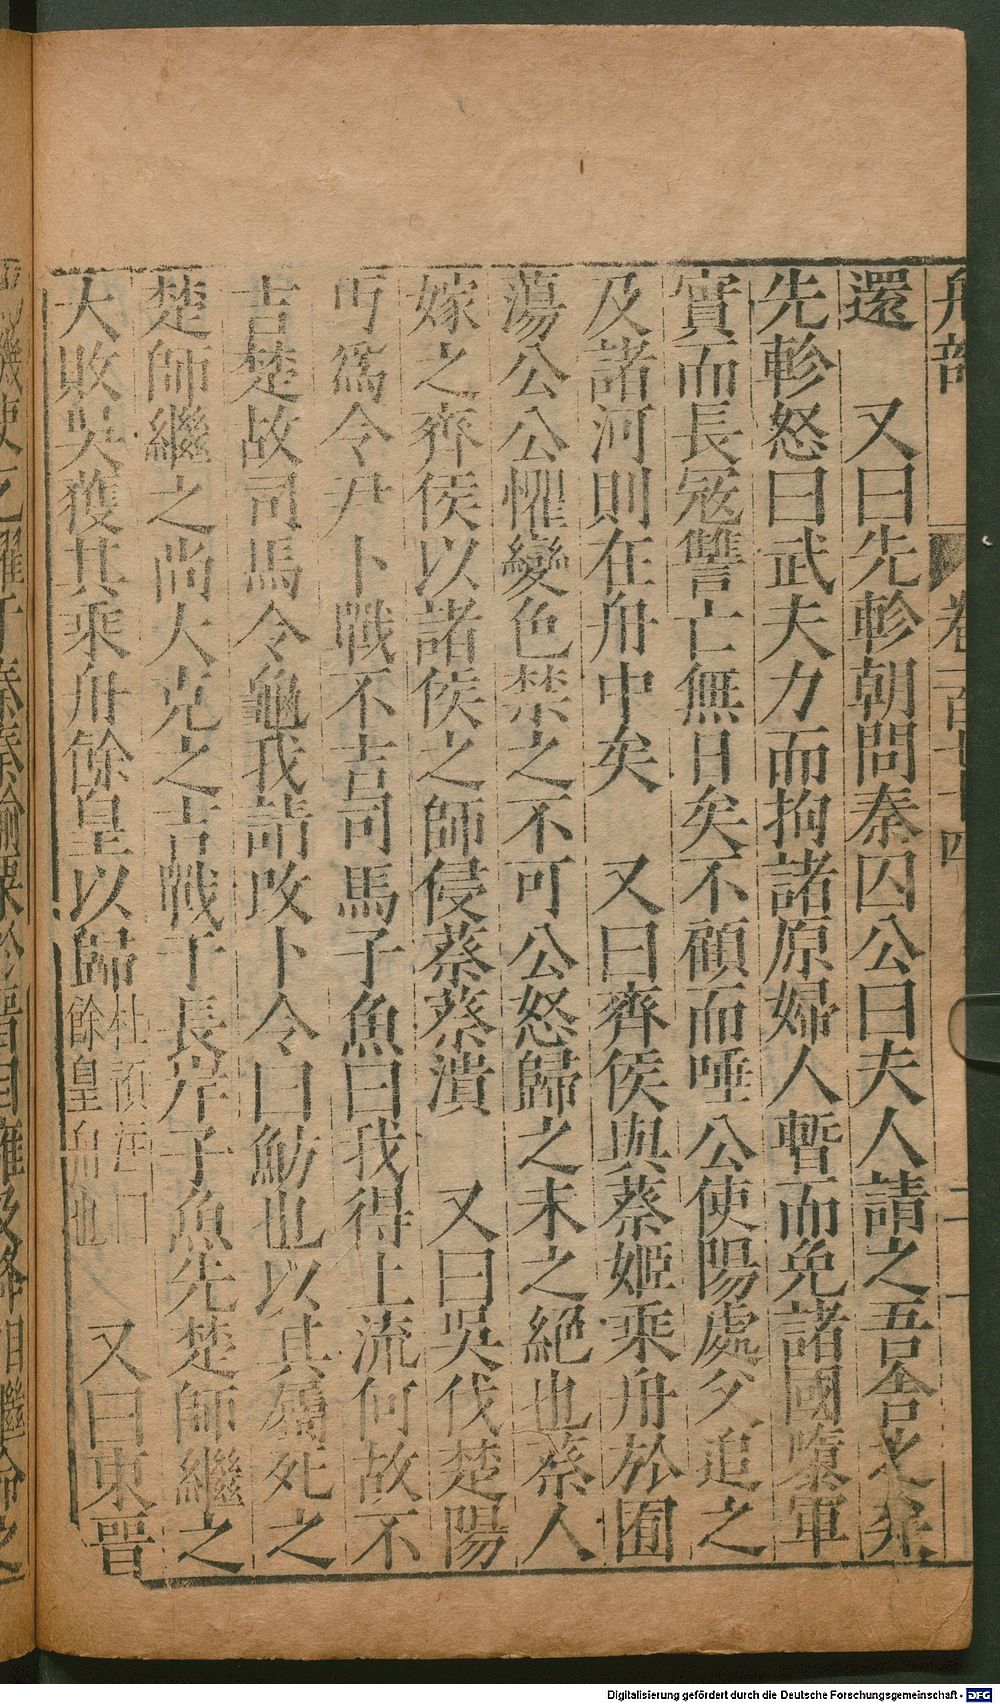 舟部 卷一百七十四 二
還 又曰先軫朝問秦囚公曰夫人請之吾舍之矣
先軫怒曰武夫力而拘諸原婦人暫而免諸國隳軍
實而長寇讐亡無日矣不顧而唾公使陽處父追之
及諸河則在舟中矣 又曰齊侯與蔡姬乘舟於囿
蕩公公懼變色禁之不可公怒歸之未之絕也蔡人
嫁之齊侯以諸侯之師侵蔡蔡潰 又曰吳伐楚陽
丐爲令尹卜戰不吉司馬子魚曰我得上流何故不
吉楚故司馬令龜我請攺卜令曰魴也以其屬死之
楚師繼之尚大克之吉戰于長岸子魚先楚師繼之
大敗吳獲其乘舟餘皇以歸杜預注曰餘皇舟也 又曰東晉
Digitalisierung gefördert durch die Deutsche Forschungsgemeinschaft - DFG